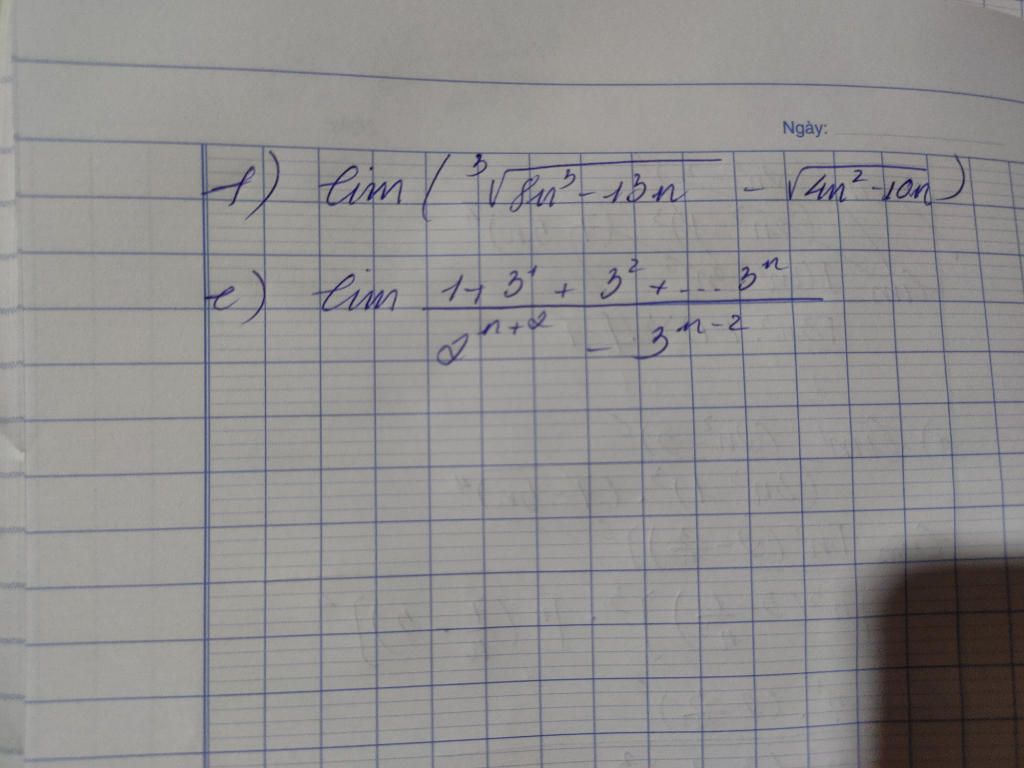 Ngày:
f) lim (³√(8n³ - 13n) - √(4n² - 10n))
e) lim (1 + 3¹ + 3² + ... 3ⁿ) / (2ⁿ⁺² - 3ⁿ⁻²)